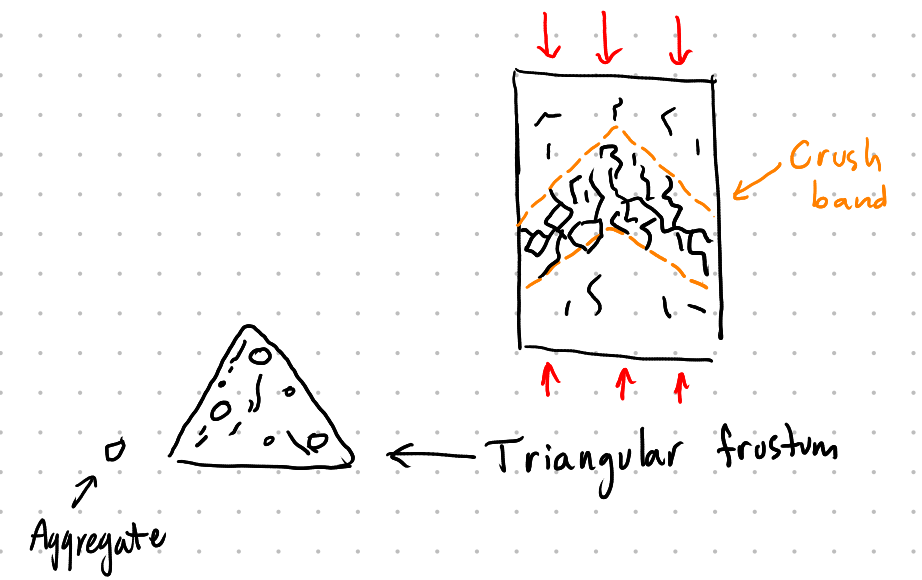 Crush
band
Triangular frustum
Aggregate